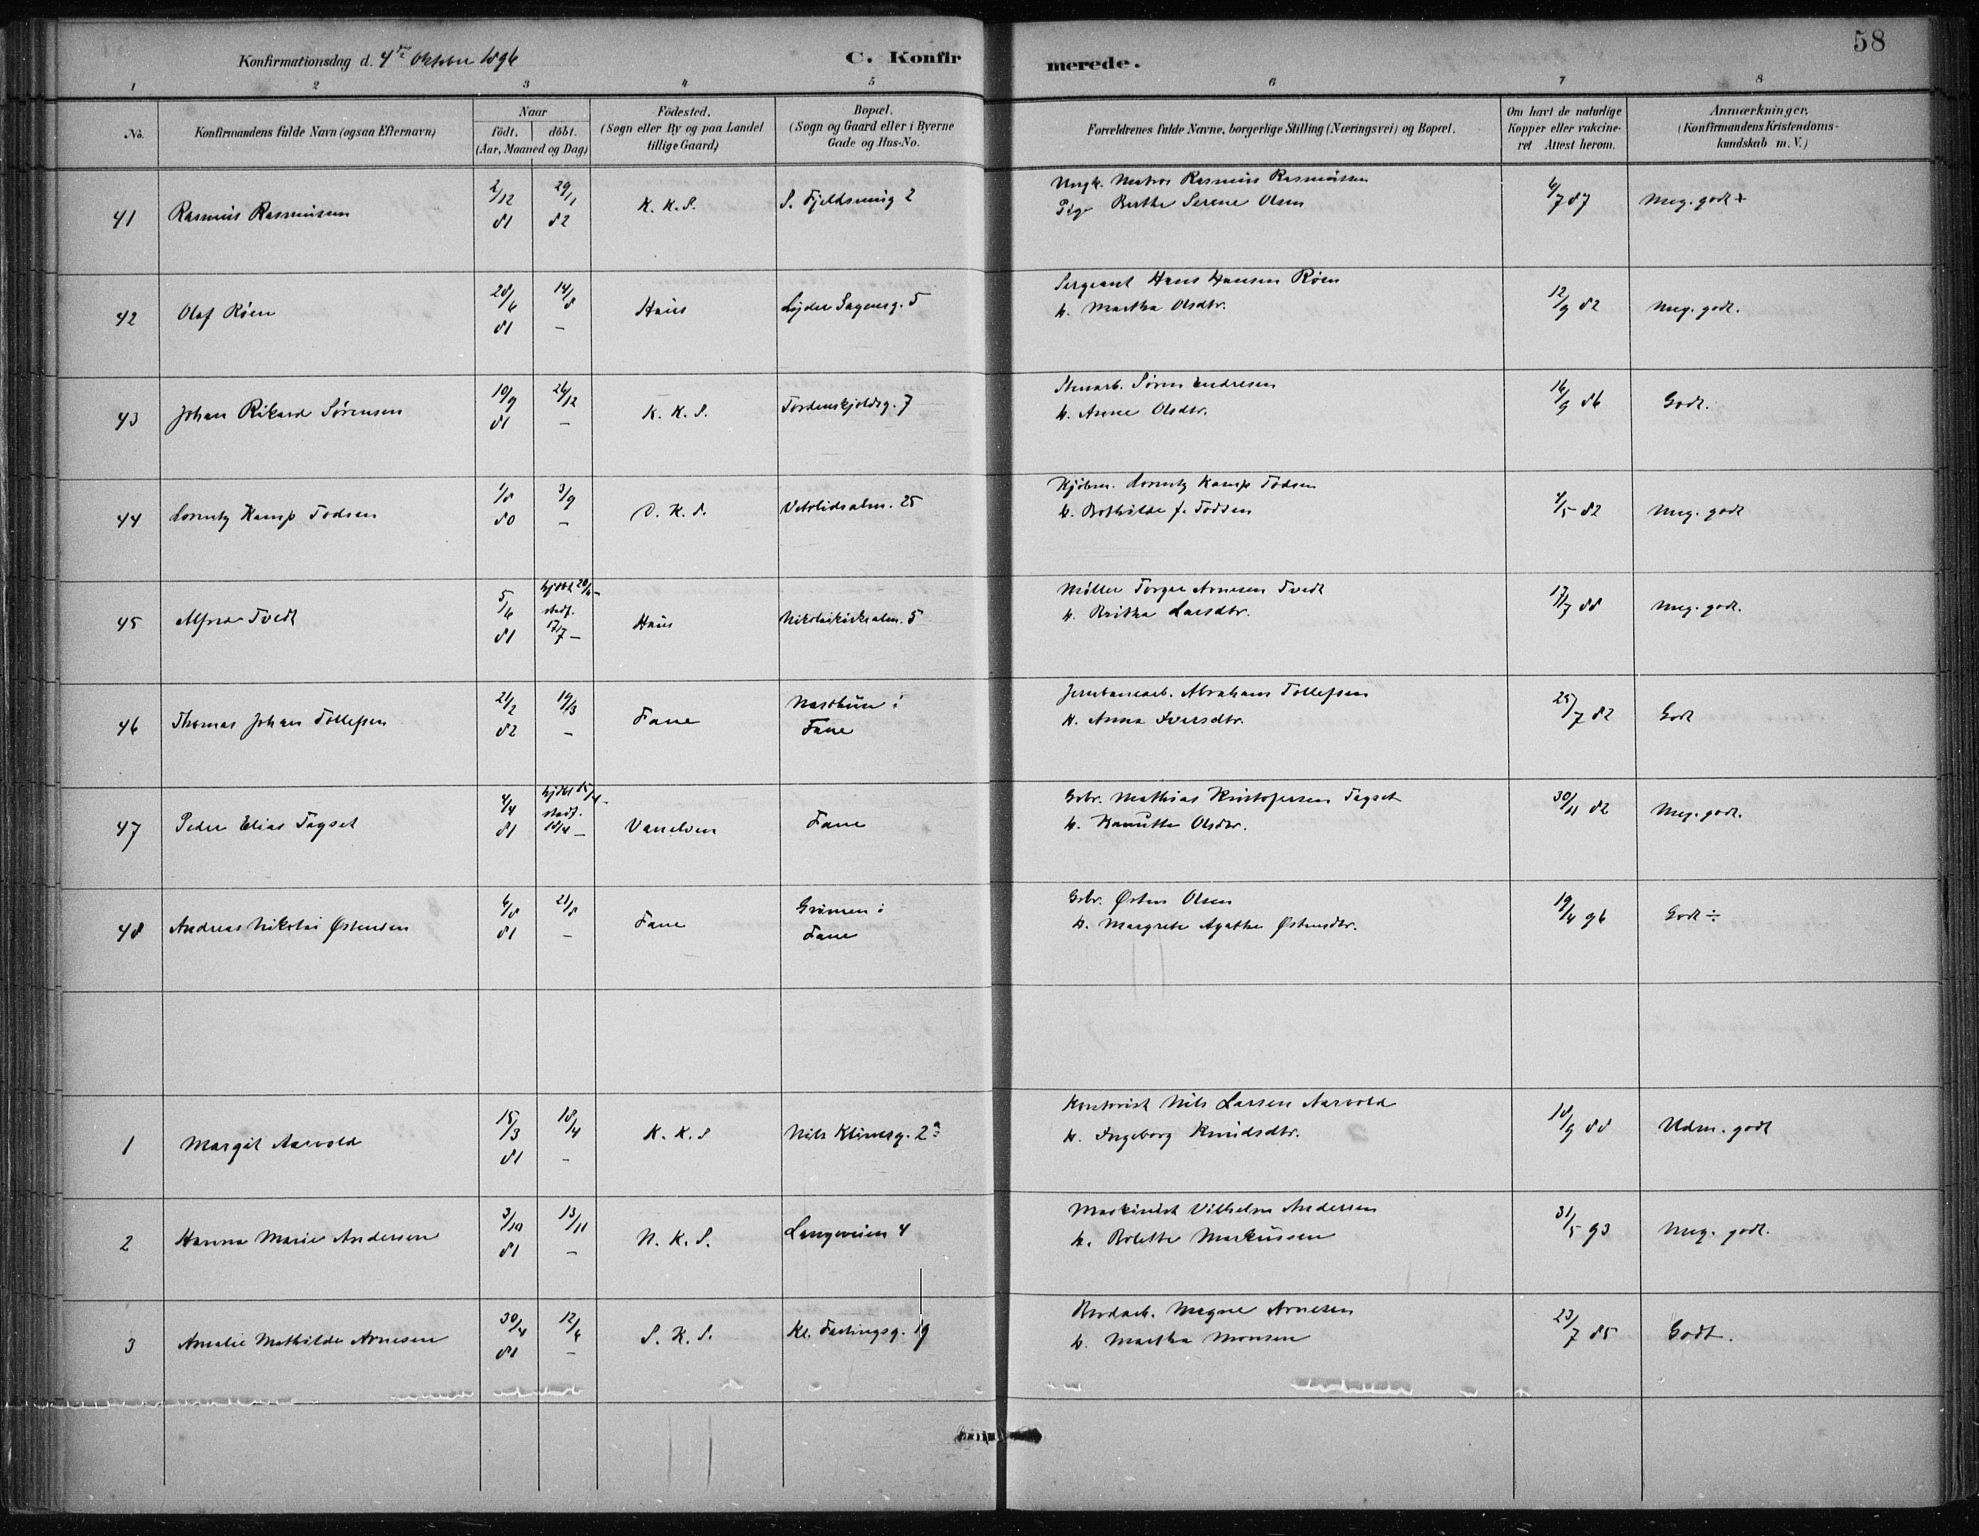 58
Konfirmationsdag d. 4de Oktober 1896
C. Konfirmerede.
1 2 3 4 5 6 7 8
No.
Konfirmandens fulde Navn (ogsaa Efternavn)
Naar
födt. döbt.
(Aar, Maaned og Dag)
Födested.
(Sogn eller By og paa Landet tillige Gaard)
Bopæl.
(Sogn og Gaard eller i Byerne Gade og Hus-No.
Forældrenes fulde Navne, borgerlige Stilling (Næringsvei) og Bopæl.
Om havt de naturlige Kopper eller vakcineret Attest herom.
Anmærkninger.
(Konfirmandens Kristendomskundskab m. V.)
41 Rasmus Rasmussen 2/12 81 29/1 82 K. K. S. S. Fjeldsmug 2 Ungk. Matros Rasmus Rasmussen 6/7 87 Meg. godt +
Pige Berthe Serene Olsen
42 Olaf Røen 28/6 81 14/8 – Haus Lyder Sagensg. 5 Sergeant Hans Hansen Røen 12/9 82 Meg. godt.
H. Martha Olsdtr.
43 Johan Rikard Sørensen 10/9 81 26/12 – K. K. S. Tordenskjoldsg. 7 Stenarb. Søren Endresen 16/9 86 Godt.
H. Anne Olsdtr.
44 Lorentz Kamp Todsen 1/8 80 3/9 – D. K. S. Vetrlidsalm. 25 Kjøbm. Lorentz Kamp Todsen 4/5 82 Meg. godt
H. Bothilde f. Todsen
45 Alfred Tvedt 5/6 81 hjdbt 20/6 – stadf. 17/7 – Haus Nikolaikirkealm. 5 Møller Torger Arnesen Tvedt 17/7 88 Meg. godt.
H. Britha Larsdtr.
46 Thomas Johan Tollefsen 21/2 82 19/3 – Fane Nesttun i Fane Jernbanearb. Abraham Tollefsen 25/7 82 Godt
H. Anna Iversdtr.
47 Peder Elias Tagset 4/4 81 hjdbt 15/4 – stadf. 18/4 – Vanelven Fane Gbr. Mathias Kristofersen Tagset 30/11 82 Meg. godt.
H. Hanutte Olsdtr.
48 Andreas Nikolai Østensen 6/8 81 21/8 – Fane Grimen i Fane Gbr. Østen Olsen 19/4 96 Godt ÷
H. Margrete Agathe Østensdtr.
1 Margit Aarvold 15/3 81 18/4 – K. K. S Nils Klimsg. 2a Kontorist Nils Larsen Aarvold 18/9 88 Udm. godt
H. Ingeborg Knudsdtr.
2 Hanna Marie Andersen 3/10 81 13/11 – N. K. S. Langeveien 4 Maskinist Vilhelm Andersen 31/5 93 Meg. godt.
H. Bolette Markussen
3 Amalie Mathilde Arnesen 30/4 81 12/6 – S. K. S. Kl. Fastingsg. 19 Bordarb. Magne Arnesen 23/7 85 Godt.
H. Martha Monsen